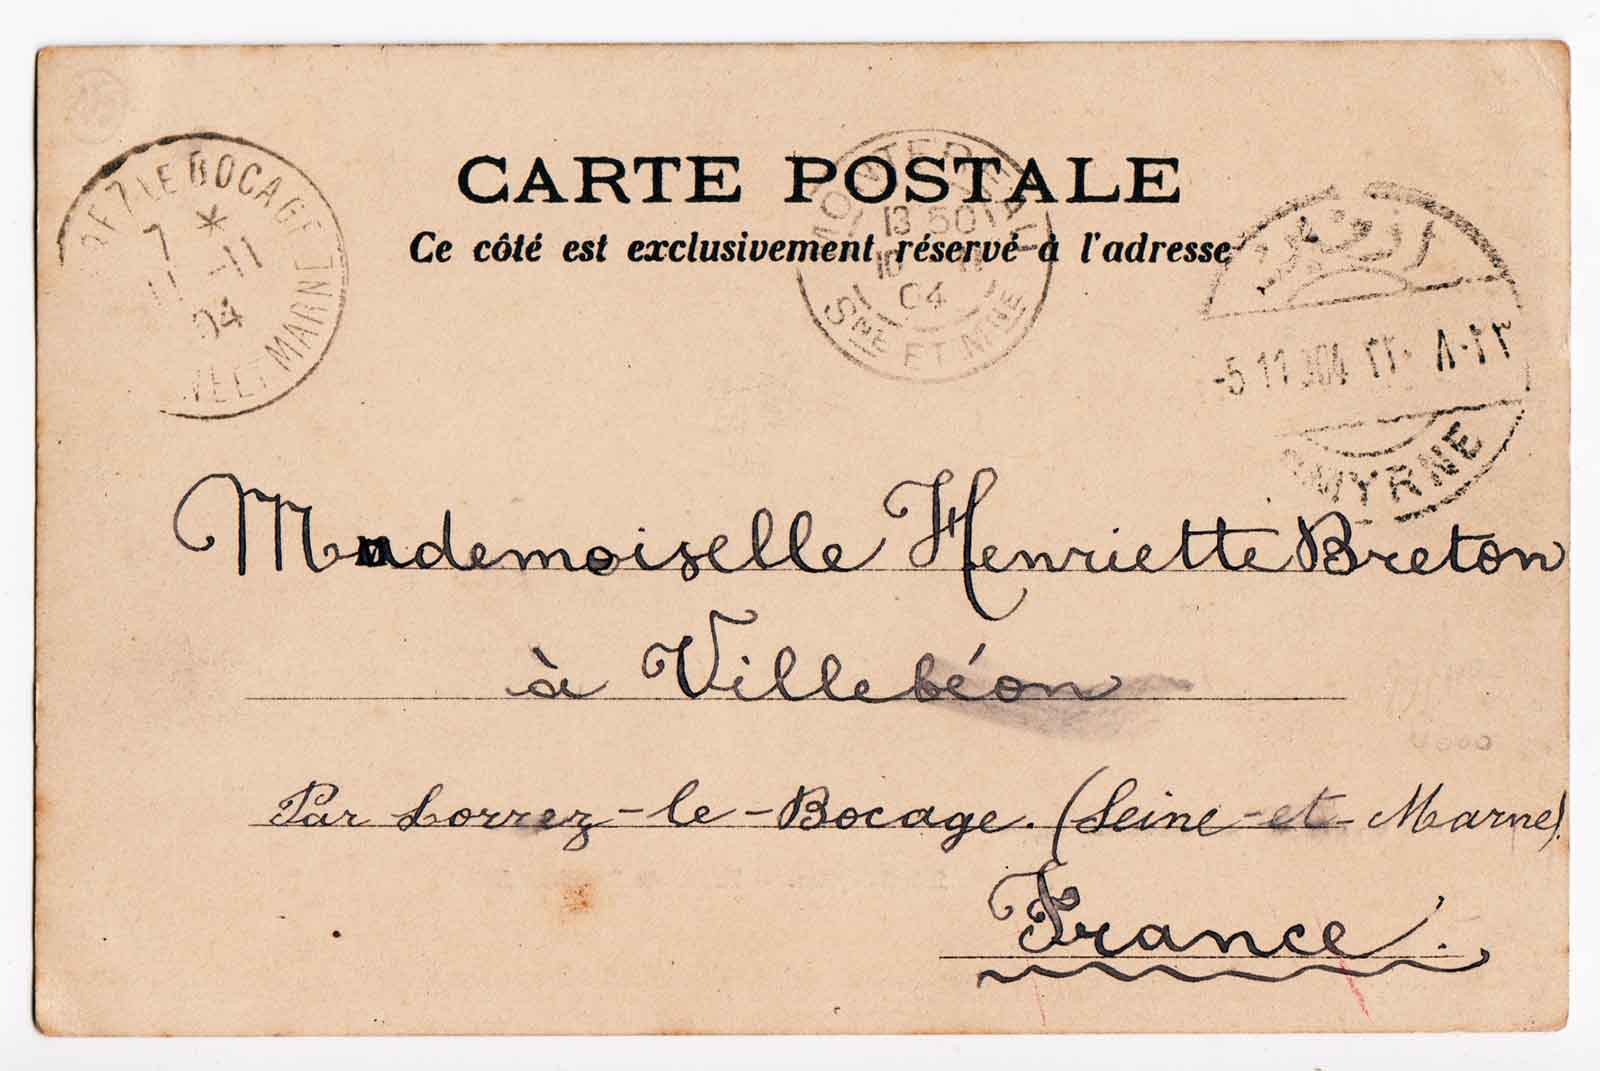 CARTE POSTALE
Ce côté est exclusivement réservé à l'adresse
LE BOCAGE
7 *
11 -11
04
ET MARNE
13 50
10
04
SNE ET MNE
ازمير
-5 11
SMYRNE
Mademoiselle Henriette Breton
à Villebéon
Par Lorrez-le-Bocage. (Seine-et-Marne).
France.